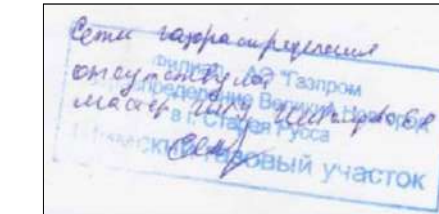 Сети газораспределения
отсутствуют
мастер
Филиал АО "Газпром
газораспределение Великий Новгород"
в г. Старая Русса
Шимский газовый участок